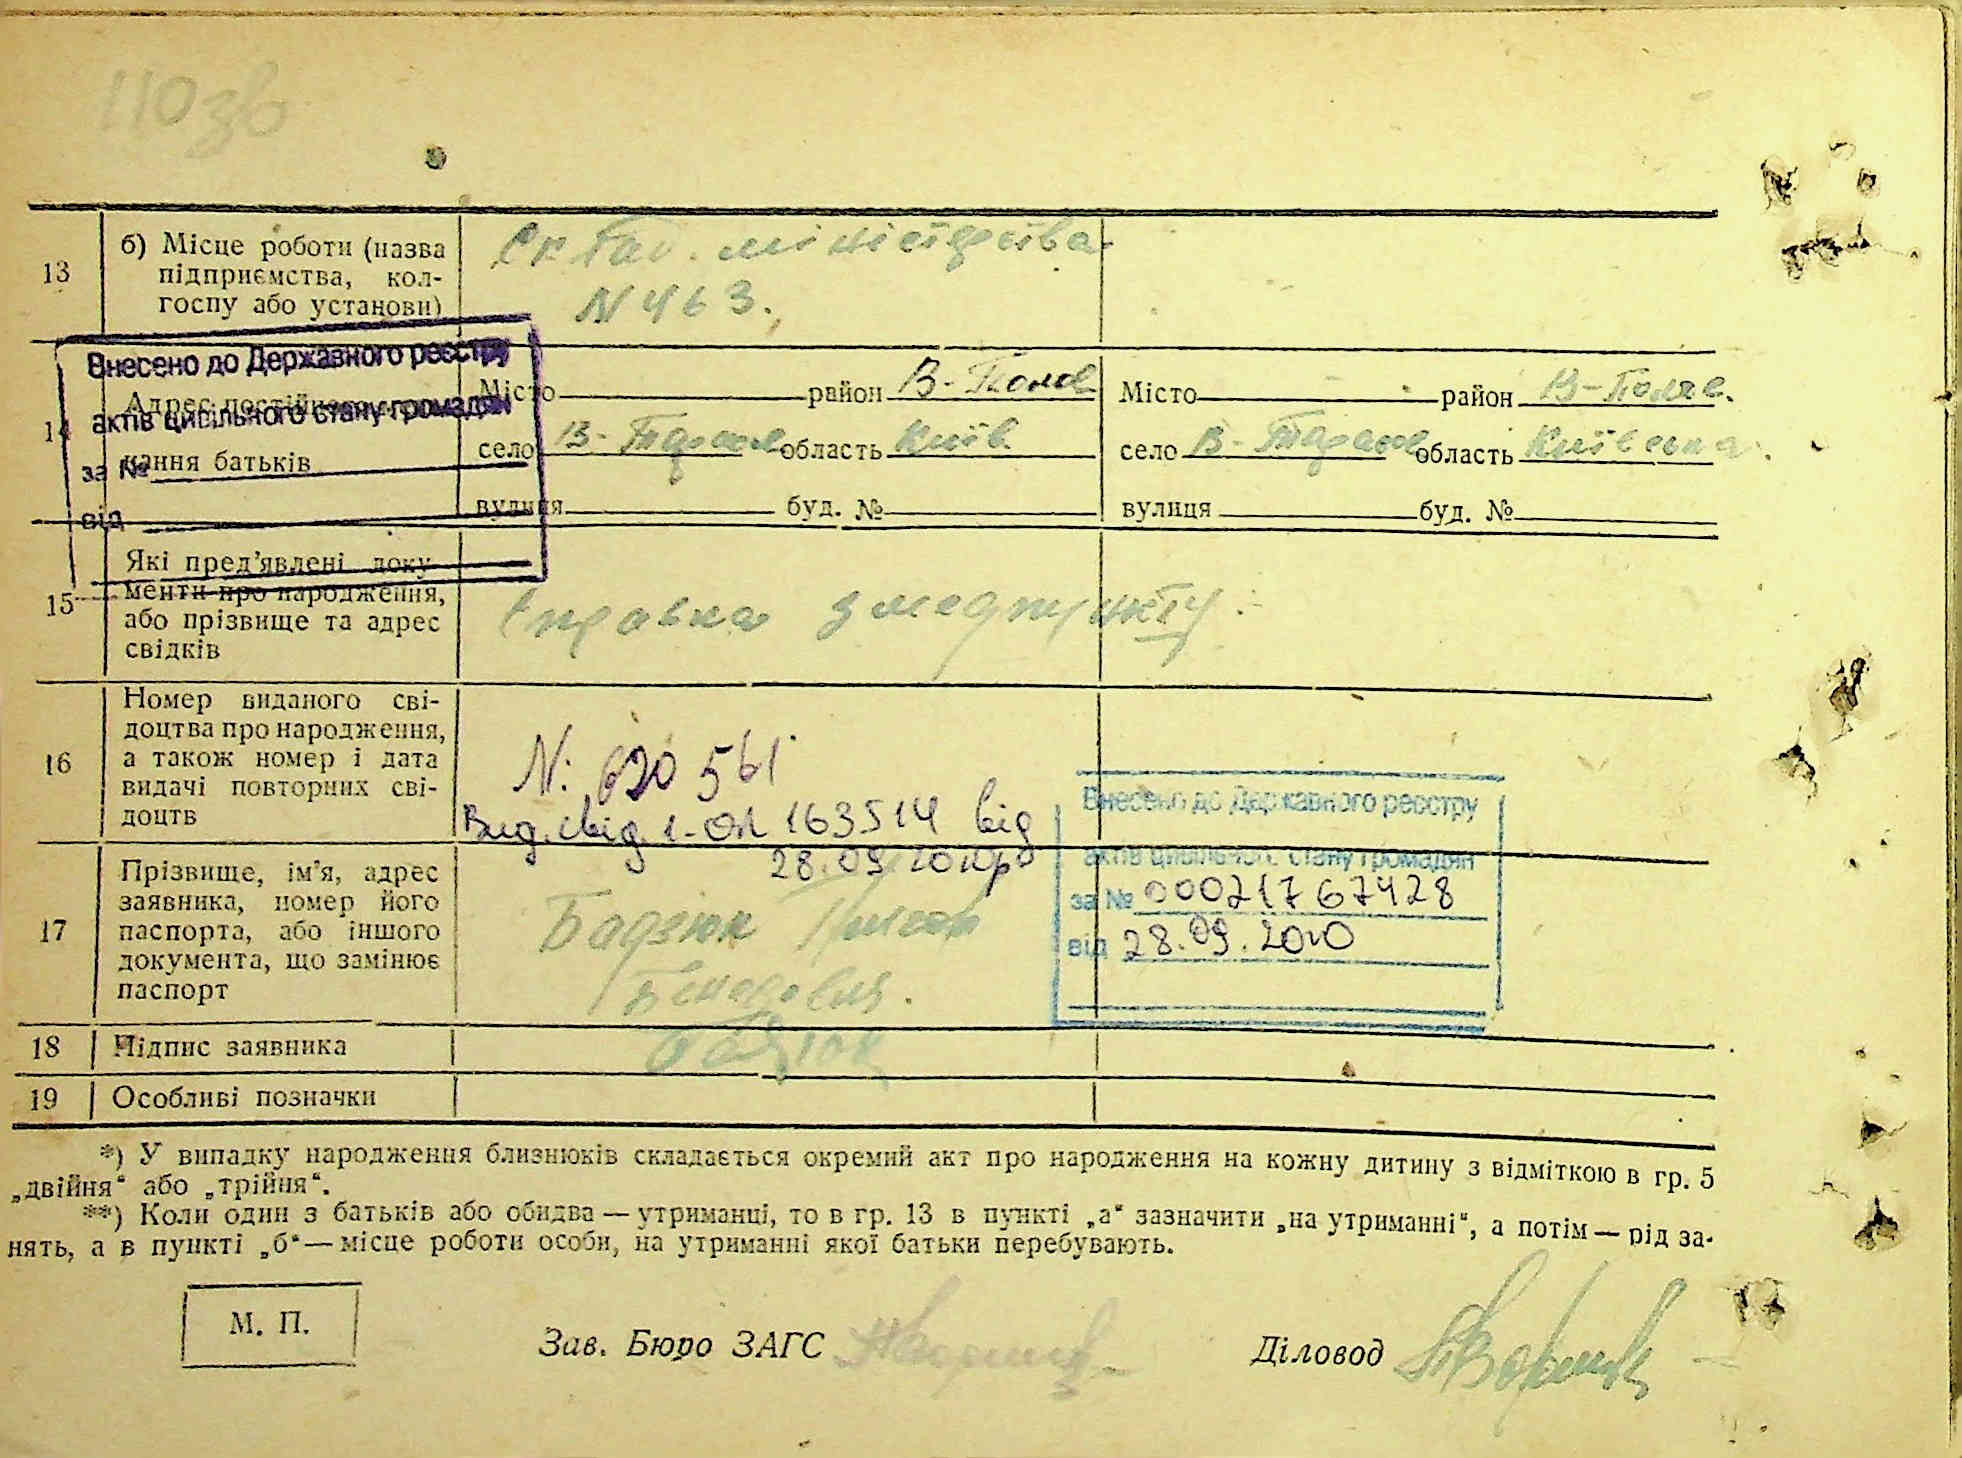 110зв
13
б) Місце роботи (назва
підприємства, кол-
госпу або установи)
міністерства
N 463.
Внесено до Державного реєстру
актів цивільного стану громадян
за №
від
14
Адрес постійного
кання батьків
Місто район В-Полов
село В-Тарасов область Київ.
вулиця буд. №
Місто район В-Полов.
село В-Тарасов область Київська.
вулиця буд. №
15
Які пред'явлені доку-
менти про народження,
або прізвище та адрес
свідків
Справка з медпункту.
16
Номер виданого сві-
доцтва про народження,
а також номер і дата
видачі повторних сві-
доцтв
N: 620 561
Вид. свід. 1-ОЛ 163514 від
28.09.2010р
Внесено до Державного реєстру
актів цивільного стану громадян
за № 00021767428
від 28.09.2010
17
Прізвище, ім'я, адрес
заявника, номер його
паспорта, або іншого
документа, що замінює
паспорт
Бадзюк
18 Підпис заявника
Бадзюк
19 Особливі позначки
*) У випадку народження близнюків складається окремий акт про народження на кожну дитину з відміткою в гр. 5
„двійня“ або „трійня“.
**) Коли один з батьків або обидва — утриманці, то в гр. 13 в пункті „а“ зазначити „на утриманні“, а потім — рід за-
нять, а в пункті „б“ — місце роботи особи, на утриманні якої батьки перебувають.
М. П.
Зав. Бюро ЗАГС
Діловод